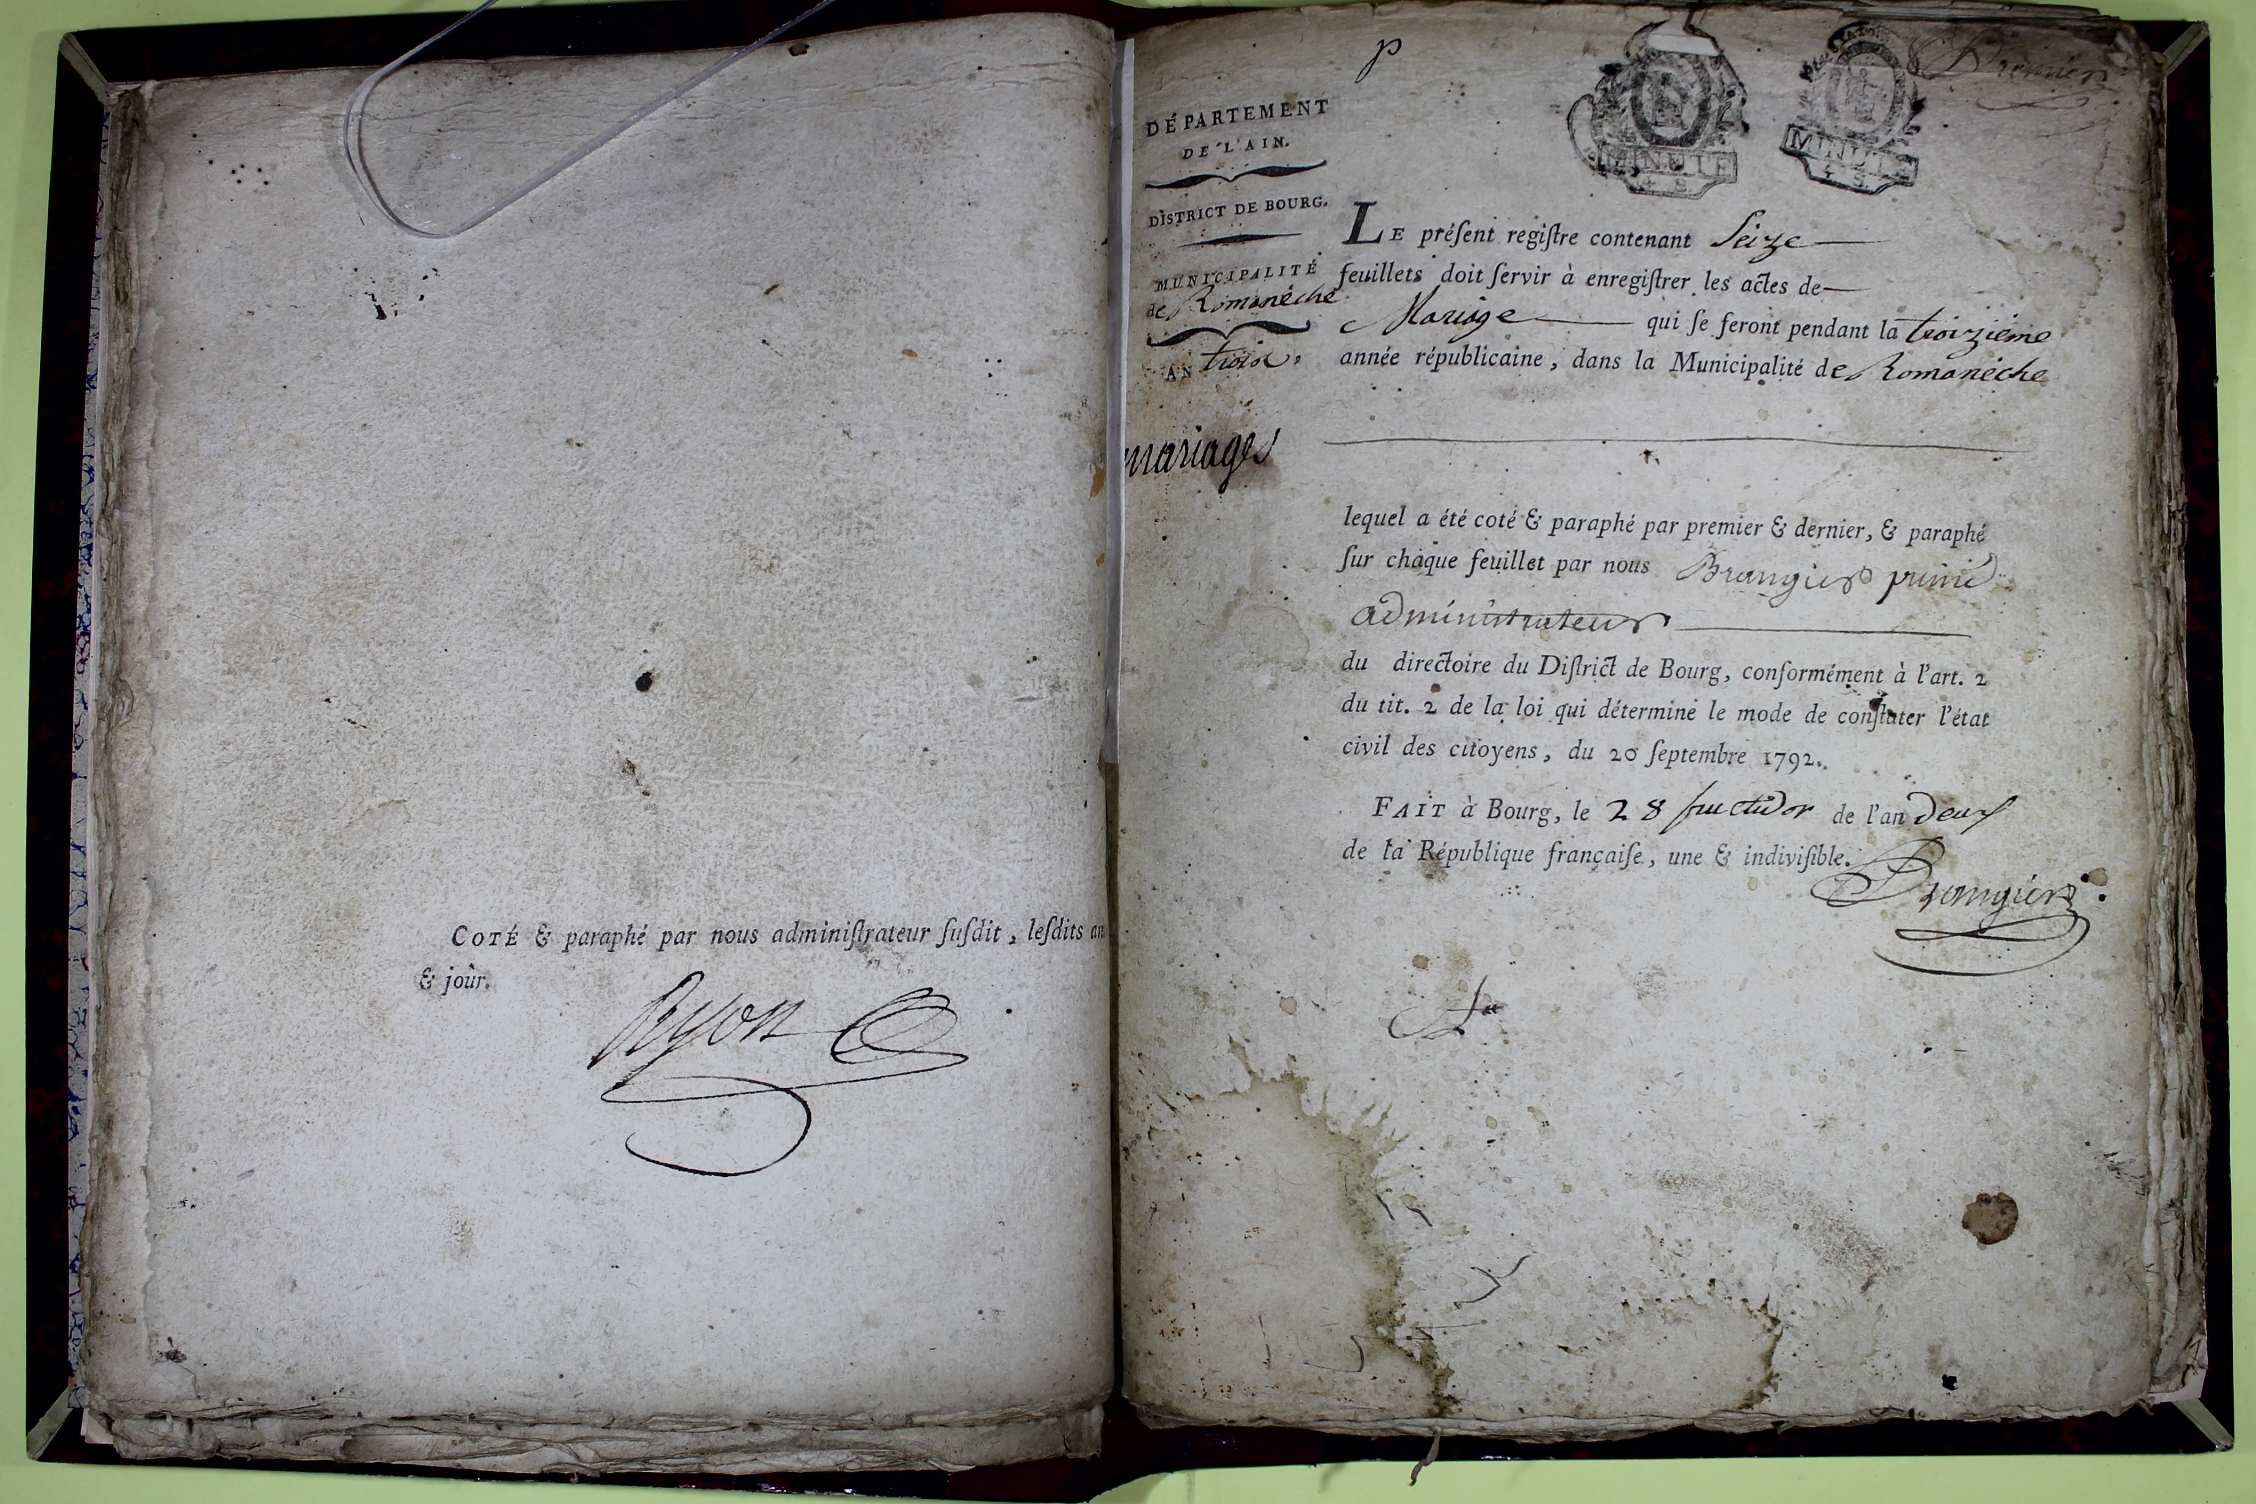 COTÉ & paraphé par nous adminiſtrateur ſuſdit, leſdits an
& jour.
Ryon
P
Premier
MINUTE
4 S
MINUTE
4 S
DÉPARTEMENT
DE L'AIN.
DISTRICT DE BOURG.
MUNICIPALITÉ
de Romanéche
AN trois.
mariages
LE préſent regiſtre contenant Seize
feuillets doit ſervir à enregiſtrer les actes de
Mariage qui ſe feront pendant la troizième
année républicaine, dans la Municipalité de Romanéche
lequel a été coté & paraphé par premier & dernier, & paraphé
ſur chaque feuillet par nous Brangier
administrateur
du directoire du Diſtrict de Bourg, conformément à l'art. 2
du tit. 2 de la loi qui détermine le mode de conſtater l'état
civil des citoyens, du 20 ſeptembre 1792.
FAIT à Bourg, le 28 fructidor de l'an deux
de la République françaiſe, une & indiviſible.
Brangier